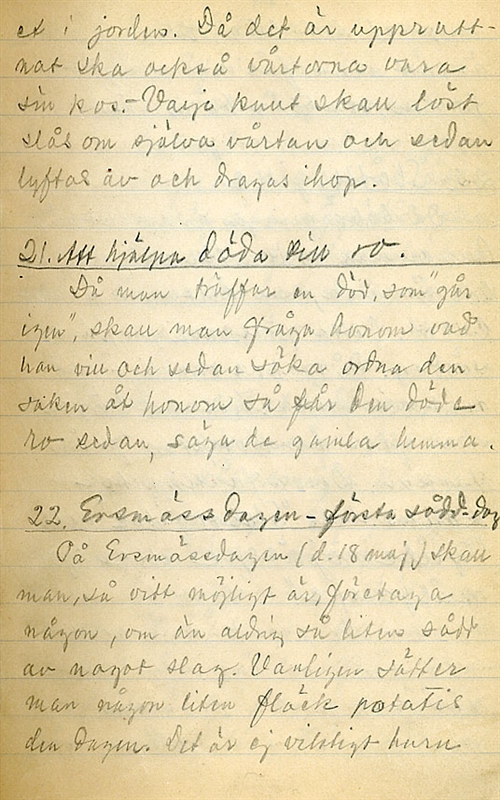 et i jorden. Då det är upprutt-
nat ska också vårtorna vara
sin kos. - Varje knut skall löst
slås om själva vårtan och sedan
lyftas av och dragas ihop.
21. Att hjälpa döda till ro.
Då man träffar en död, som "går
igen", skall man fråga honom vad
han vill och sedan söka ordna den
saken åt honom så får den döde
ro sedan, säga de gamla hemma.
22. Ersmässdagen - första sådd-dag
På Ersmässdagen (d. 18 maj) skall
man, så vitt möjligt är, företaga
någon, om än aldrig så liten sådd
av något slag. Vanligen sätter
man någon liten fläck potatis
den dagen. Det är ej viktigt huru